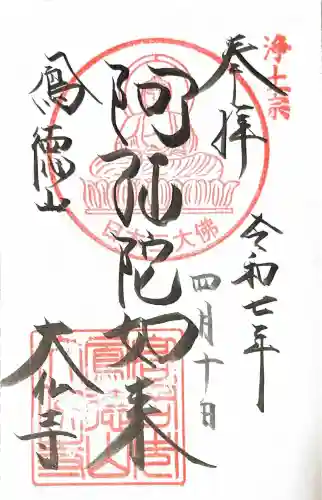 浄土宗
奉拝
令和七年
四月十日
阿弥陀如来
日本三大佛
鳳徳山
大仏寺